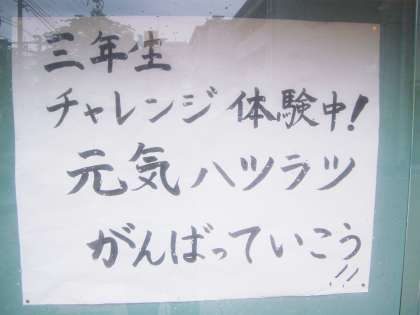 三年生
チャレンジ体験中!
元気ハツラツ
がんばっていこう!!